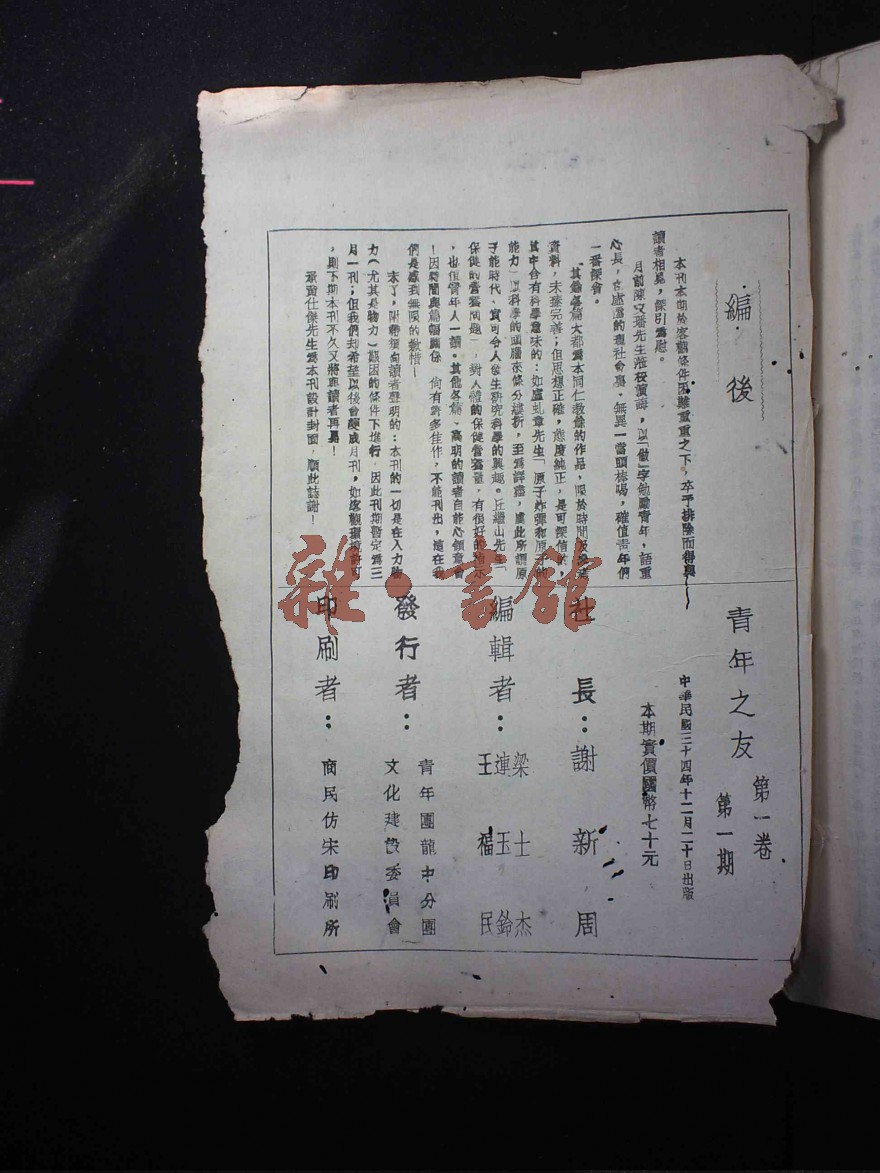 編後
本刊本期於客觀條件困難重重之下，卒予排除而得與
讀者相見，深引為慰。
月前陳文璠先生蒞校演講，以「做」字勉勵青年，語重
心長，在虛偽的社會裏，無異一當頭棒喝，確值青年們
一番深省。
其餘各篇大都為本同仁教餘的作品，限於時間及參考
資料，未臻完善；但思想正確，態度純正，是可深信的，
其中含有科學意味的：如盧虬章先生「原子炸彈和原子的
能力」以科學的頭腦來條分縷析，至為詳盡，處此所謂原
子能時代，實可令人發生研究科學的興趣。丘繼山先生「
保健的營養問題」—對人體的保健營養量，有很好的指示
，也值青年人一讀。其他各篇，高明的讀者自能心領意會
！因時間與篇幅關係，尚有許多佳作，不能刊出，這在我
們是感到無限的歉惜！
末了，附帶須向讀者聲明的：本刊的一切是在人力物
力（尤其是物力）艱困的條件下進行，因此刊期暫定為三
月一刊；但我們却希望以後會變成月刊，如客觀環境許可
，則下期本刊不久又將與讀者再見！
承黃仕傑先生為本刊設計封面，順此誌謝！
青年之友
第一卷
第一期
中華民國三十四年十二月二十日出版
本期實價國幣七十元
社長：謝新周
編輯者：梁士杰
連玉鈴
王福民
發行者：青年團龍中分團
文化建設委員會
印刷者：商民仿宋印刷所
雜·書館